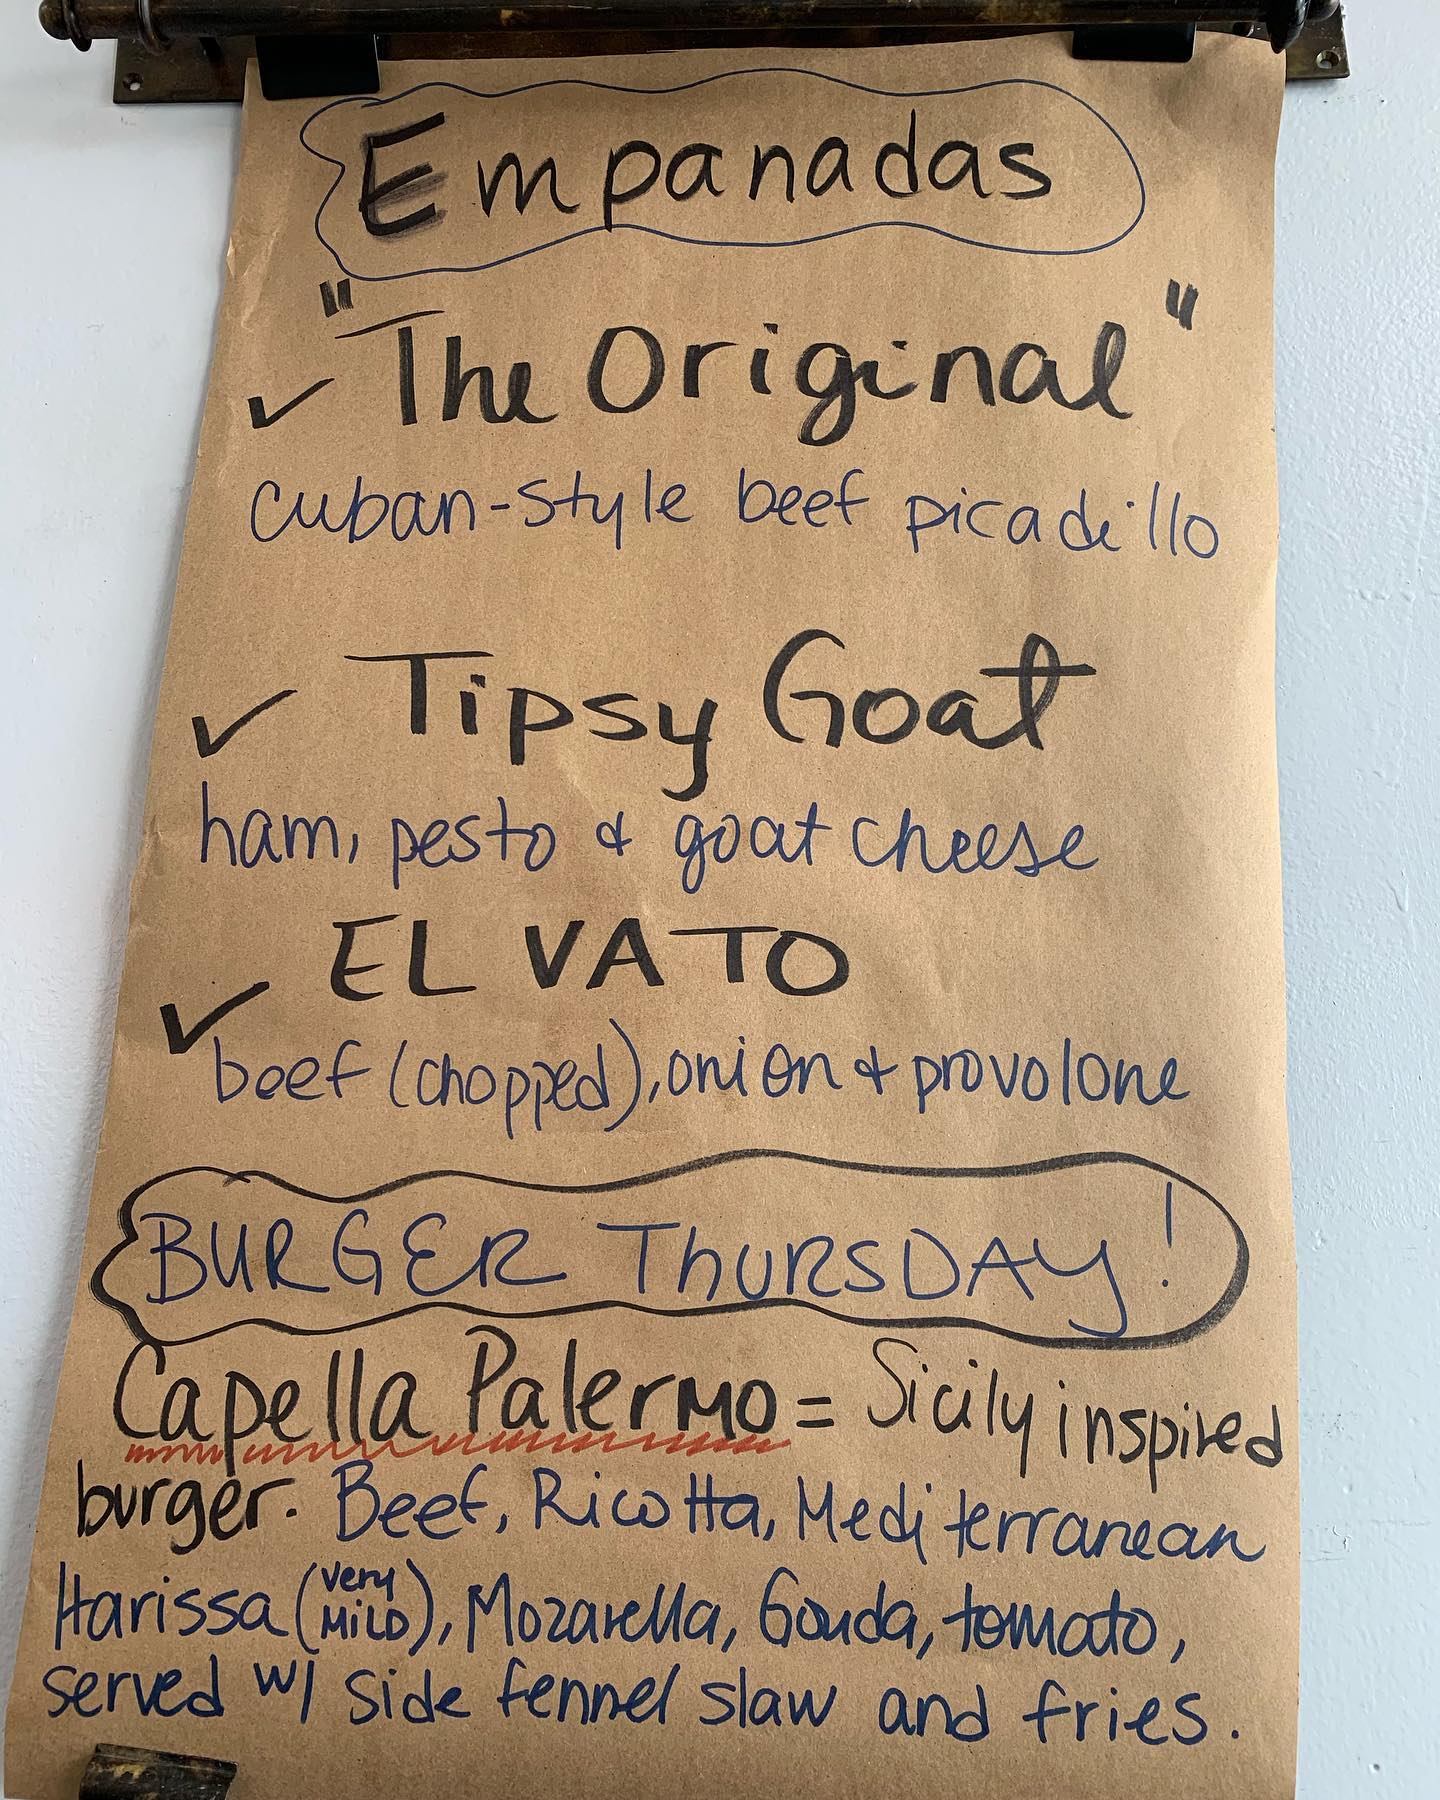 Empanadas
"The Original"
✓
cuban-style beef picadillo
✓ Tipsy Goat
ham, pesto & goat cheese
EL VATO
✓
beef (chopped), onion & provolone
BURGER THURSDAY!
Capella Palermo = Sicily inspired
burger. Beef, Ricotta, Mediterranean
Harissa (very MILD), Mozarella, Gouda, tomato,
served w/ side fennel slaw and fries.